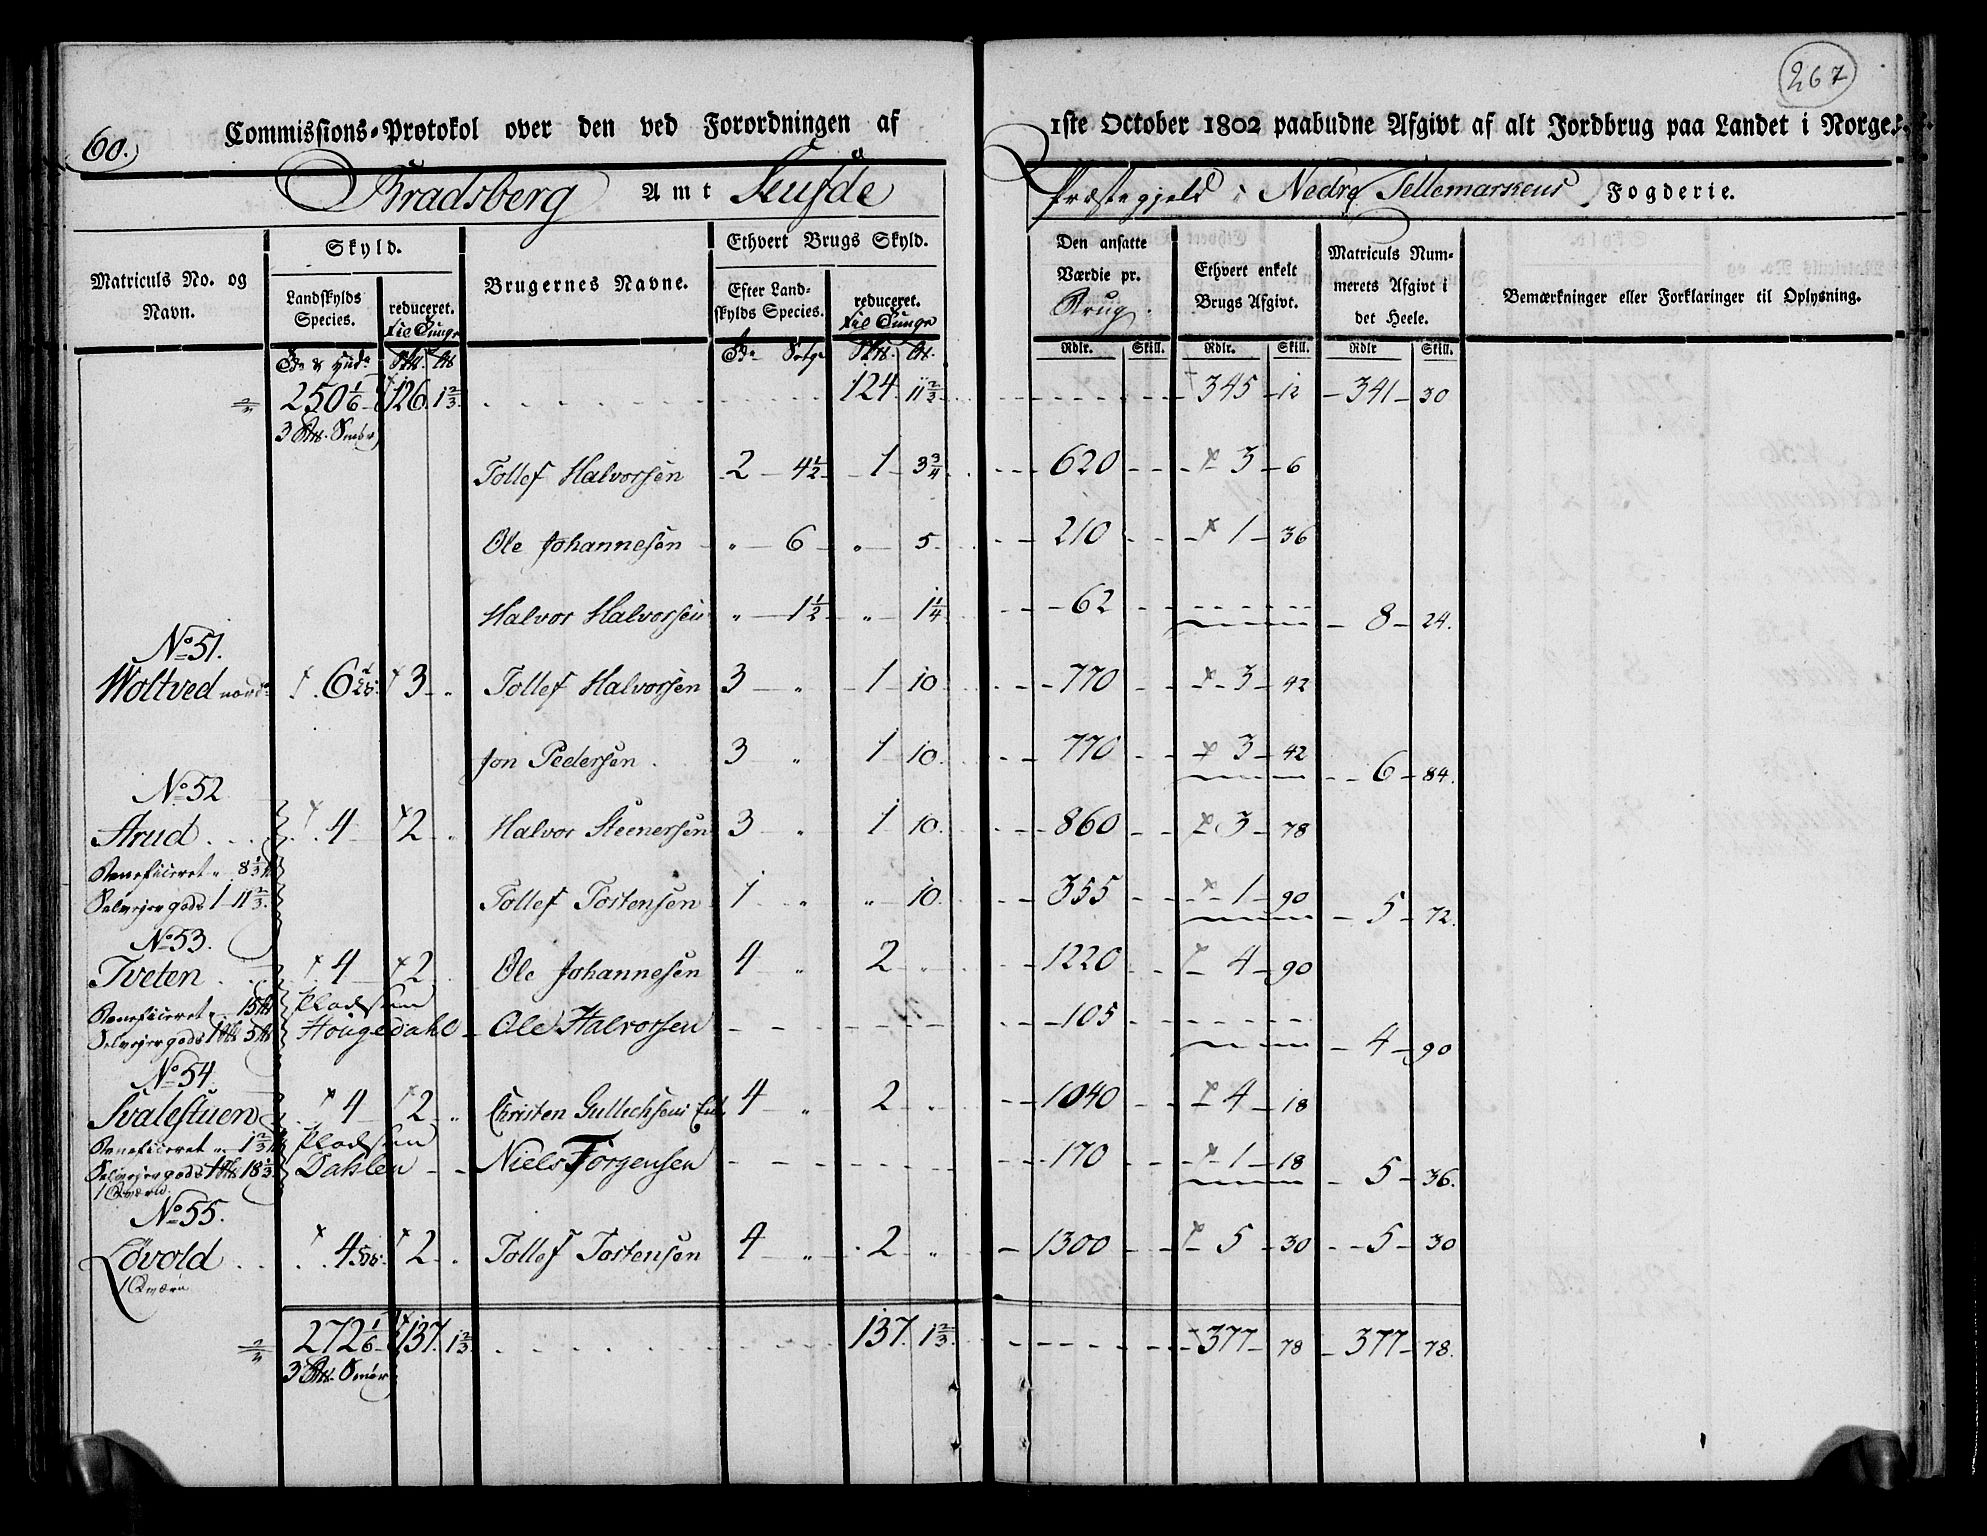 267
60.
Commissions-Protokol over den ved Forordningen af 1ste October 1802 paabudne Afgivt af alt Jordbrug paa Landet i Norge.
Bradsberg Amt Seufde Præstegjeld i Nedre Tellemarkens Fogderie.
Matriculs No. og Navn. Skyld. Brugernes Navne. Ethvert Brugs Skyld. Den ansatte Værdie pr. Brug. Ethvert enkelt Brugs Afgivt. Matriculs Nummerets Afgivt i det Heele. Bemærkninger eller Forklaringer til Oplysning.
Landskylds Species. reduceret. til Tunge Efter Landskylds Species. reduceret. til Tunge
Rdlr. Skill. Rdlr. Skill. Rdlr Skill.
250 1/6 126. 1 2/3 124. 11 2/3 345 - 12 - 341 - 30
3 Smör
Tollef Halvorsen 2 - 4 1/2 - 1 - 3 3/4 620 3 - 6
Ole Johannesen " - 6 " - 5 210 1 - 36
Halvor Halvorsen " - 1 1/2 " 1 1/4 62 8 - 24.
No 51.
Woltved nord 6 3 " Tollef Halvorsen 3 - " - 1 - 10 770 3 - 42
Jon Pedersen 3 " 1 - 10. 770 3 - 42 6 - 84.
No 52
Arud 4 2 " Halvor Steenersen 3 " 1 10. 860 3 - 78
Beneficeret " 8 1/3
Selvejergods 1 - 11 2/3. Tollef Tostensen 1 " " - 10. 355 1 - 90 - 5 - 72.
No 53.
Tveten 4 2 Ole Johannesen 4 " 2 " 1220 4 - 90
Beneficeret " 15 Pladsen
Selvejergods 1 5 Hougedahl - Ole Halvorsen 105 4 - 90
No 54.
Svalestuen 4 2 " Christen Gullichsens 4 " 2 " 1040 4 - 18
Beneficeret " 1 2/3 Pladsen
Selvejergods 1 18 1/3 Dahlen Niels Jorgensen 170 1 - 18 - 5 - 36.
1 Qværn
No 55.
Lövold 4 2 " Tollef Tostensen 4 " 2 " 1300 5 - 30 5 - 30
1 Qværn
272 1/6 137. 1 2/3 137. 1 2/3. 377 - 78 - 377 - 78.
3 Smör